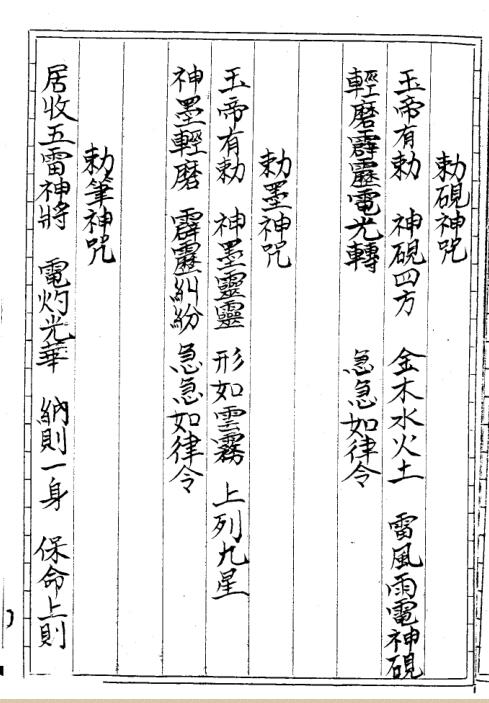 勅硯神咒
玉帝有勅　神硯四方　金木水火土　雷風雨電神硯
輕磨霹靂電光轉　急急如律令
勅墨神咒
玉帝有勅　神墨靈靈　形如雲霧　上列九星
神墨輕磨　霹靂糾紛　急急如律令
勅筆神咒
居收五雷神將　電灼光華　納則一身　保命上則